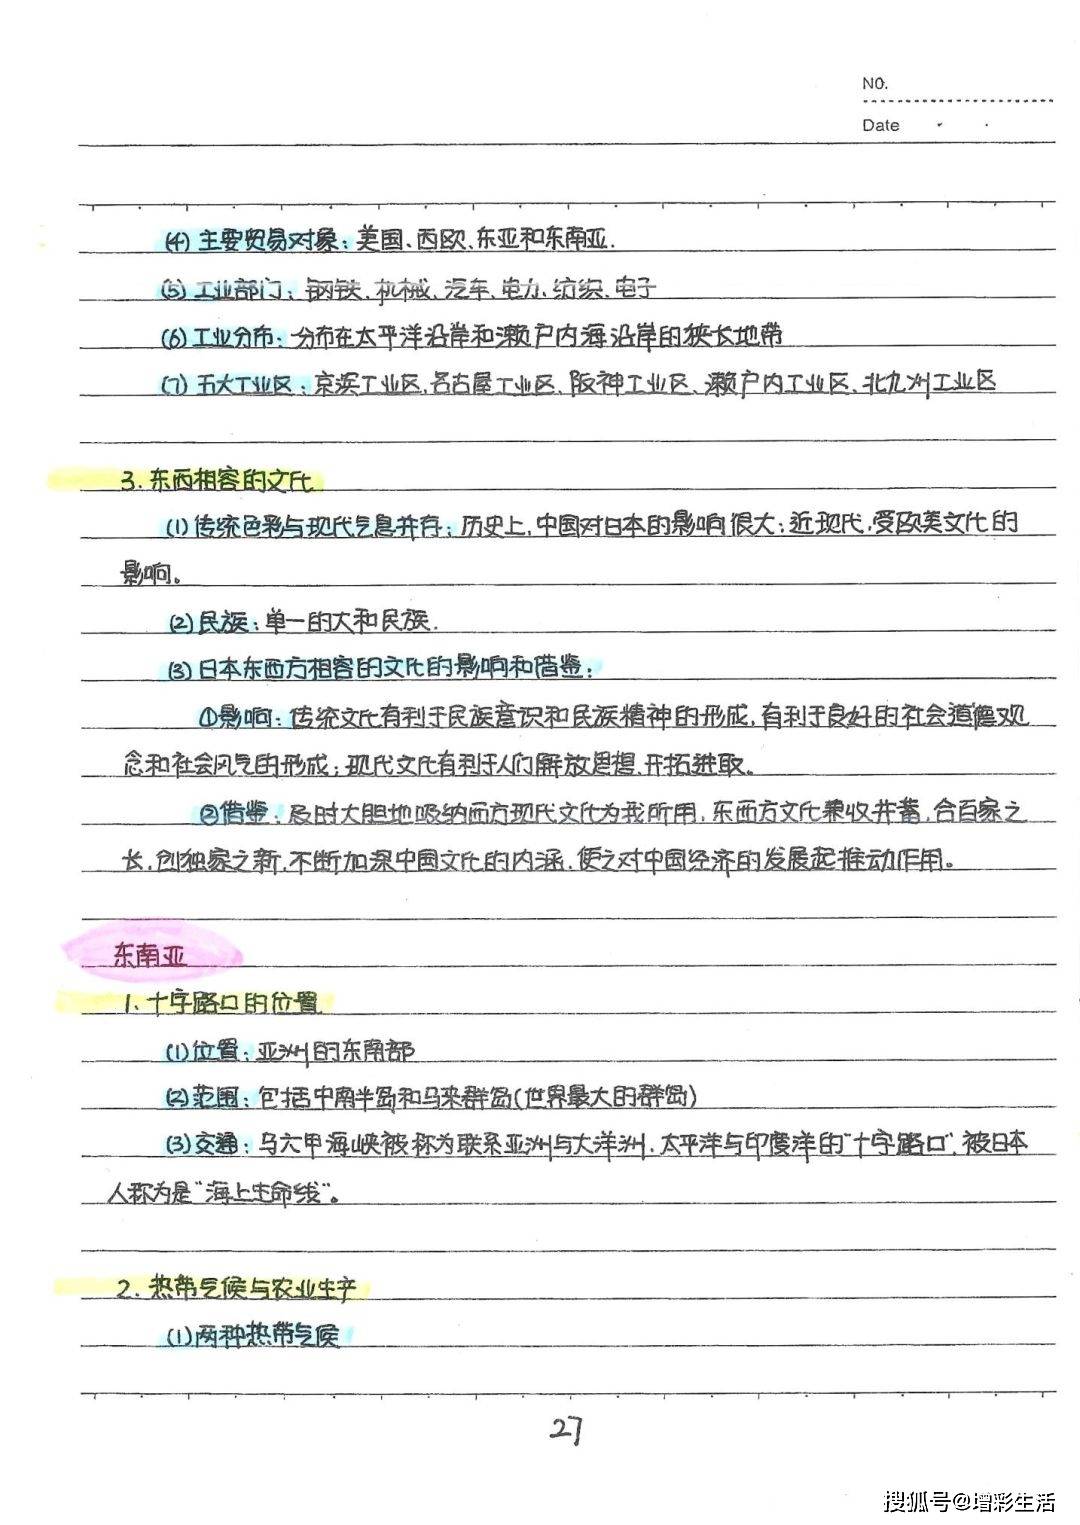 NO.
Date
(4) 主要贸易对象：美国、西欧、东亚和东南亚.
(5) 工业部门：钢铁、机械、汽车、电力、纺织、电子
(6) 工业分布：分布在太平洋沿岸和濑户内海沿岸的狭长地带
(7) 五大工业区：京滨工业区、名古屋工业区、阪神工业区、濑户内工业区、北九州工业区
3. 东西相容的文化
(1) 传统色彩与现代气息并存：历史上，中国对日本的影响很大；近现代，受欧美文化的
影响。
(2) 民族：单一的大和民族.
(3) 日本东西方相容的文化的影响和借鉴：
①影响：传统文化有利于民族意识和民族精神的形成，有利于良好的社会道德观
念和社会风气的形成；现代文化有利于人们解放思想、开拓进取。
②借鉴：及时大胆地吸纳西方现代文化为我所用，东西方文化兼收并蓄，合百家之
长，创独家之新，不断加深中国文化的内涵，使之对中国经济的发展起推动作用。
东南亚
1. 十字路口的位置
(1) 位置：亚洲的东南部
(2) 范围：包括中南半岛和马来群岛(世界最大的群岛)
(3) 交通：马六甲海峡被称为联系亚洲与大洋洲，太平洋与印度洋的“十字路口”，被日本
人称为是“海上生命线”。
2. 热带气候与农业生产
(1) 两种热带气候
27
搜狐号@增彩生活